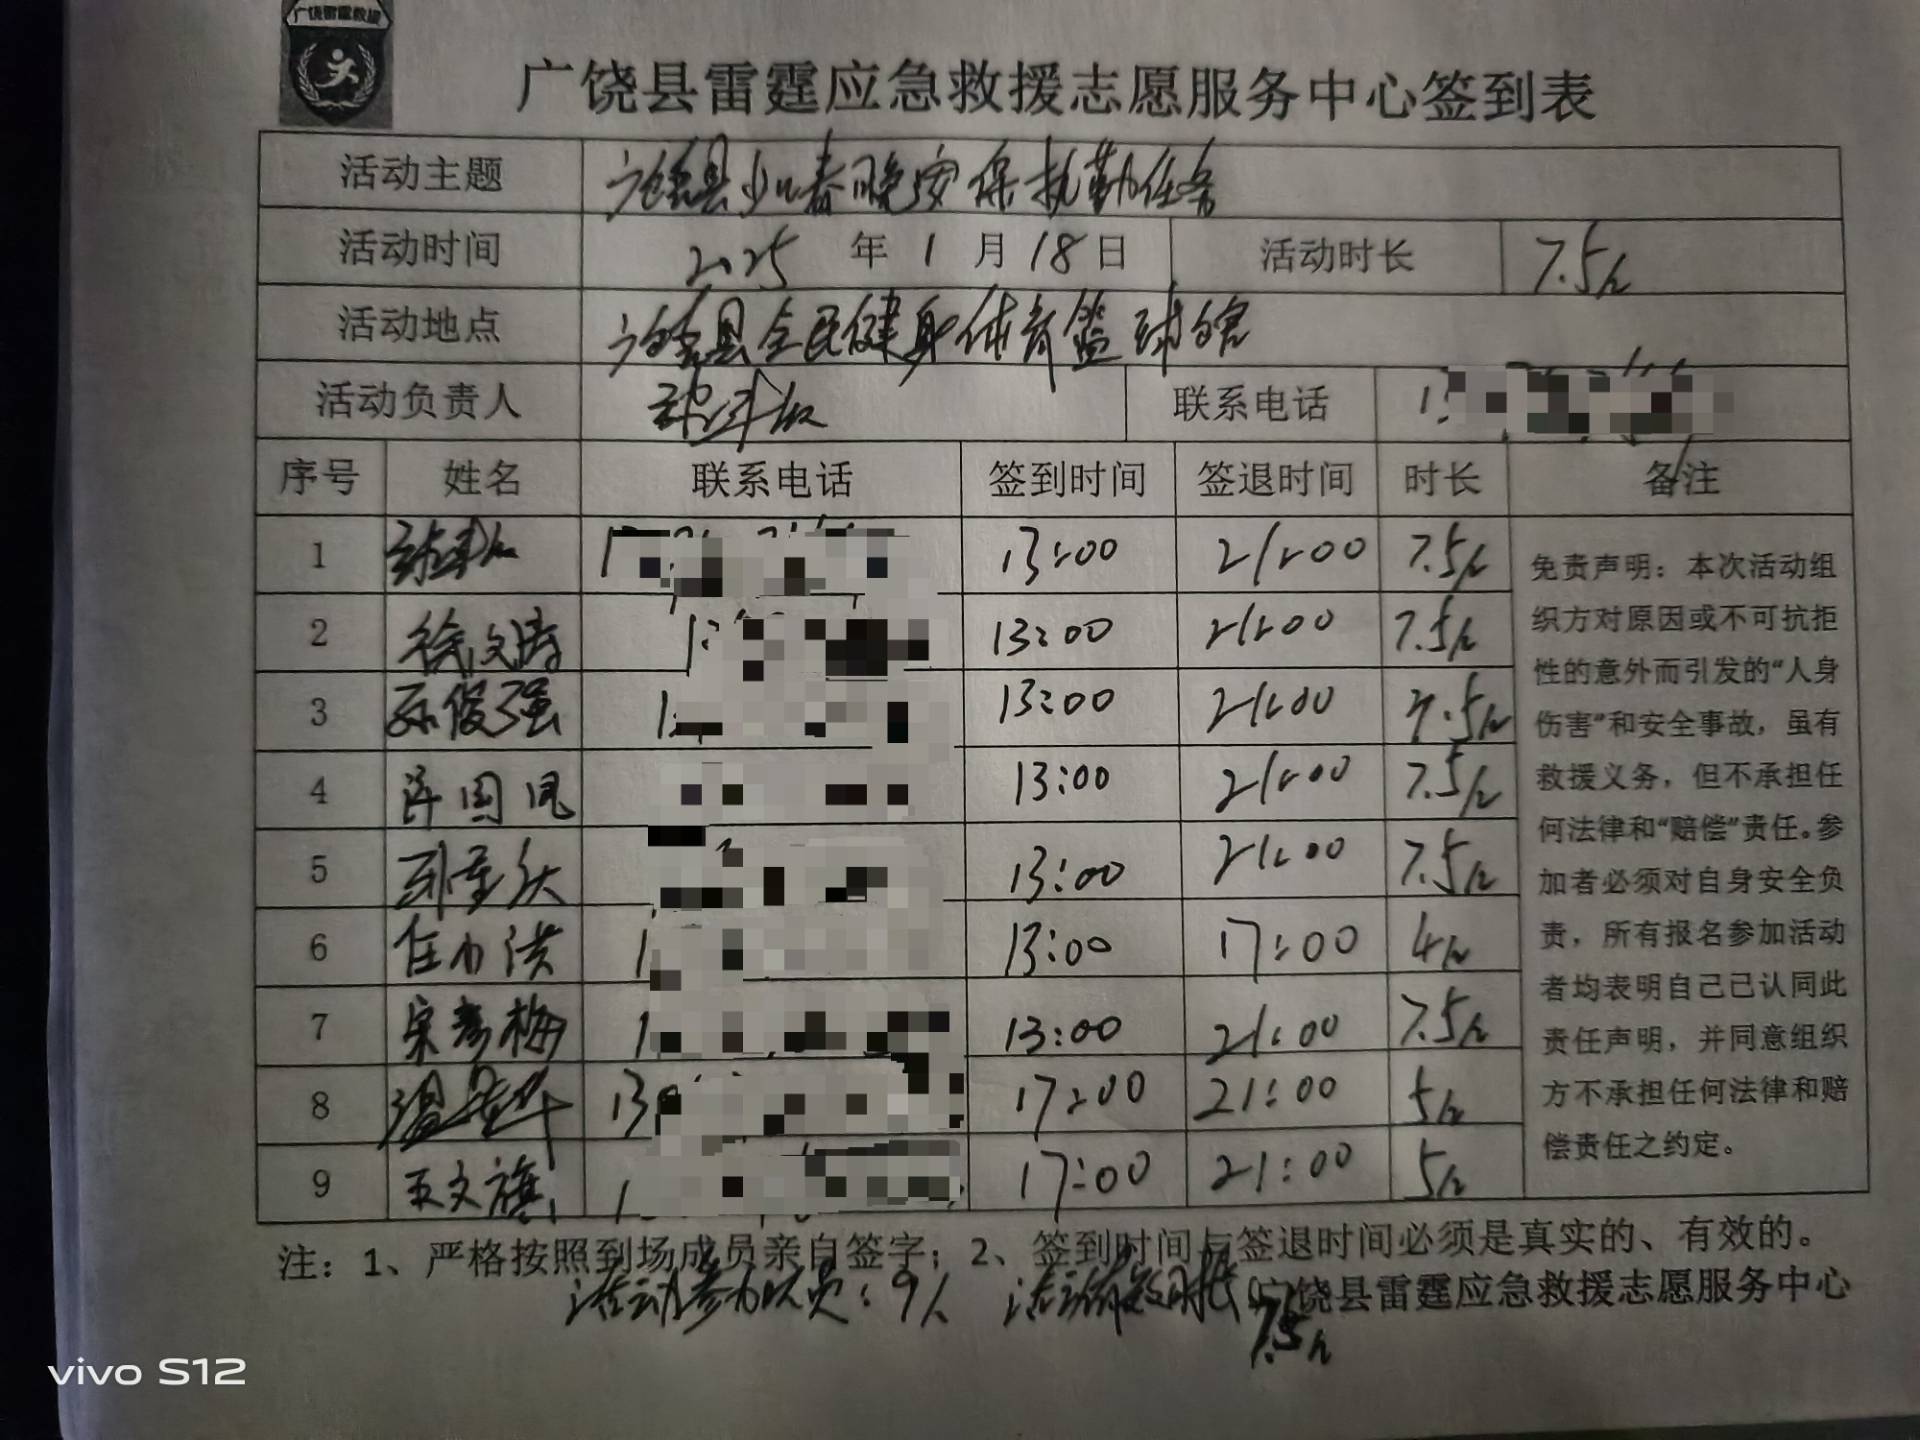 广饶雷霆救援
广饶县雷霆应急救援志愿服务中心签到表
活动主题 广饶县少儿春晚安保执勤任务
活动时间 2025 年 1 月 18 日 活动时长 7.5h
活动地点 广饶县全民健身体育篮球馆
活动负责人 联系电话
序号 姓名 联系电话 签到时间 签退时间 时长 备注
1 13:00 21:00 7.5h
2 徐文涛 13:00 21:00 7.5h
3 孙俊强 13:00 21:00 7.5h
4 许国凤 13:00 21:00 7.5h
5 13:00 21:00 7.5h
6 13:00 17:00 4h
7 宋彦梅 13:00 21:00 7.5h
8 17:00 21:00 5h
9 王文旗 17:00 21:00 5h
免责声明：本次活动组
织方对原因或不可抗拒
性的意外而引发的“人身
伤害”和安全事故，虽有
救援义务，但不承担任
何法律和“赔偿”责任。参
加者必须对自身安全负
责，所有报名参加活动
者均表明自己已认同此
责任声明，并同意组织
方不承担任何法律和赔
偿责任之约定。
注：1、严格按照到场成员亲自签字；2、签到时间与签退时间必须是真实的、有效的。
活动参加队员：9人
广饶县雷霆应急救援志愿服务中心
7.5h
vivo S12